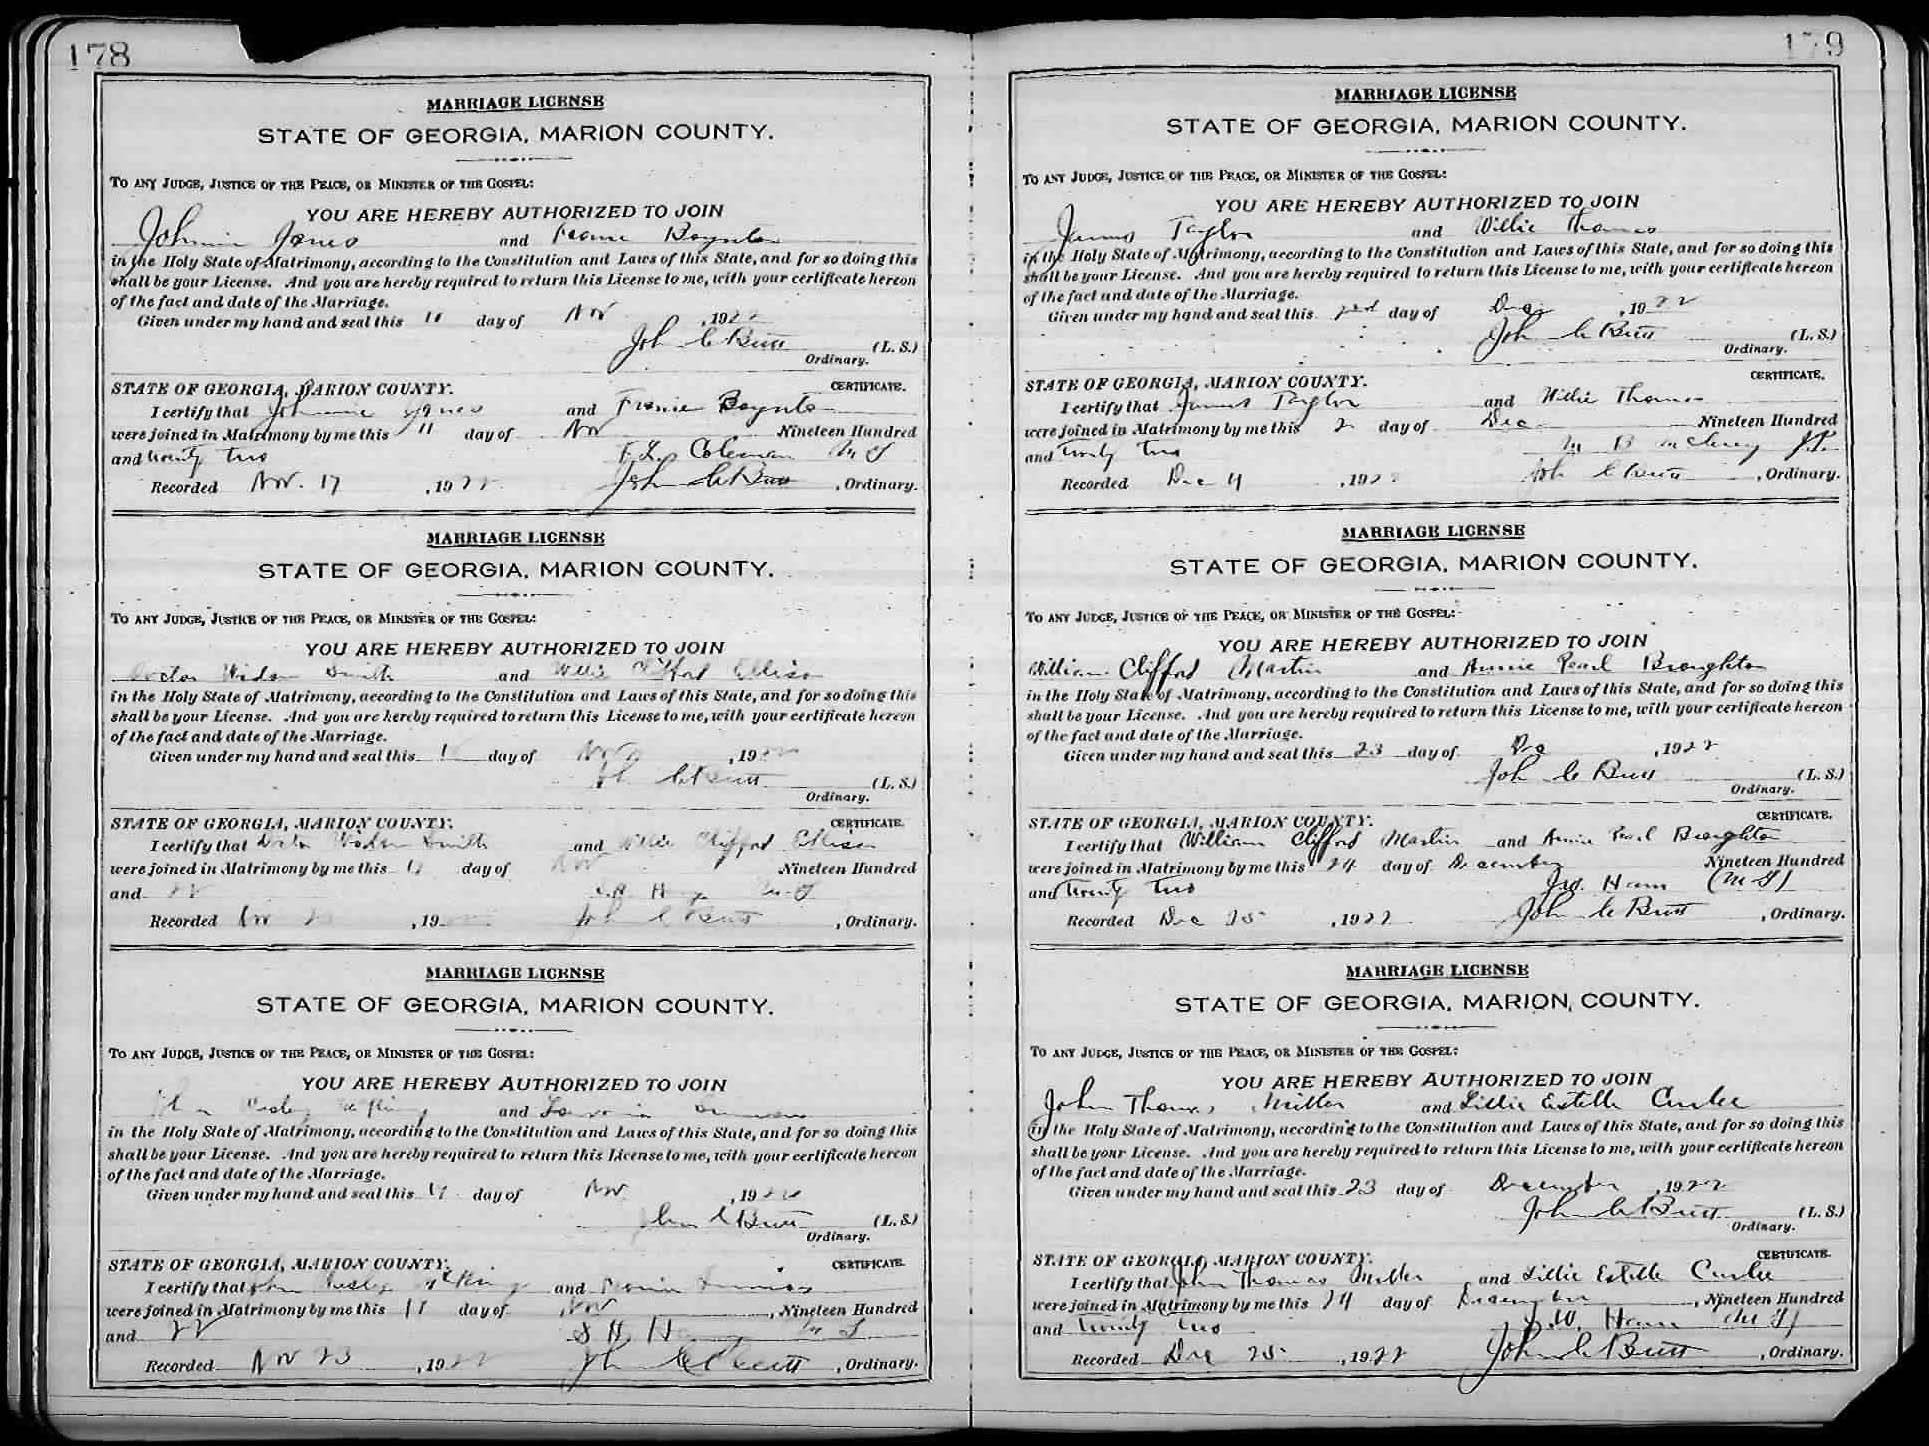 178
MARRIAGE LICENSE
STATE OF GEORGIA, MARION COUNTY.
TO ANY JUDGE, JUSTICE OF THE PEACE, OR MINISTER OF THE GOSPEL:
YOU ARE HEREBY AUTHORIZED TO JOIN
Johnnie Jones and Boynton
in the Holy State of Matrimony, according to the Constitution and Laws of this State, and for so doing this
shall be your License. And you are hereby required to return this License to me, with your certificate hereon
of the fact and date of the Marriage.
Given under my hand and seal this 11 day of Nov , 1922
John C Butt (L. S.)
Ordinary.
STATE OF GEORGIA, MARION COUNTY. CERTIFICATE.
I certify that Johnnie Jones and Boynton
were joined in Matrimony by me this 11 day of Nov Nineteen Hundred
and twenty two F. L. Coleman M G
Recorded Nov. 17 , 1922 John C Butt , Ordinary.
MARRIAGE LICENSE
STATE OF GEORGIA, MARION COUNTY.
TO ANY JUDGE, JUSTICE OF THE PEACE, OR MINISTER OF THE GOSPEL:
YOU ARE HEREBY AUTHORIZED TO JOIN
Doctor Smith and Willie Clifford Ellison
in the Holy State of Matrimony, according to the Constitution and Laws of this State, and for so doing this
shall be your License. And you are hereby required to return this License to me, with your certificate hereon
of the fact and date of the Marriage.
Given under my hand and seal this day of Nov , 1922
John C Butt (L. S.)
Ordinary.
STATE OF GEORGIA, MARION COUNTY. CERTIFICATE.
I certify that Smith and Willie Clifford Ellison
were joined in Matrimony by me this day of Nov Nineteen Hundred
and 22 M G
Recorded Nov , 19 John C Butt , Ordinary.
MARRIAGE LICENSE
STATE OF GEORGIA, MARION COUNTY.
TO ANY JUDGE, JUSTICE OF THE PEACE, OR MINISTER OF THE GOSPEL:
YOU ARE HEREBY AUTHORIZED TO JOIN
John Wesley and
in the Holy State of Matrimony, according to the Constitution and Laws of this State, and for so doing this
shall be your License. And you are hereby required to return this License to me, with your certificate hereon
of the fact and date of the Marriage.
Given under my hand and seal this day of Nov , 1922
John C Butt (L. S.)
Ordinary.
STATE OF GEORGIA, MARION COUNTY. CERTIFICATE.
I certify that John Wesley and
were joined in Matrimony by me this day of Nov , Nineteen Hundred
and 22 S H M G
Recorded Nov 23 , 1922 John C Butt , Ordinary.
179
MARRIAGE LICENSE
STATE OF GEORGIA, MARION COUNTY.
TO ANY JUDGE, JUSTICE OF THE PEACE, OR MINISTER OF THE GOSPEL:
YOU ARE HEREBY AUTHORIZED TO JOIN
James Taylor and Willie Thomas
in the Holy State of Matrimony, according to the Constitution and Laws of this State, and for so doing this
shall be your License. And you are hereby required to return this License to me, with your certificate hereon
of the fact and date of the Marriage.
Given under my hand and seal this 2nd day of Dec , 1922
John C Butt (L. S.)
Ordinary.
STATE OF GEORGIA, MARION COUNTY. CERTIFICATE.
I certify that James Taylor and Willie Thomas
were joined in Matrimony by me this 2 day of Dec Nineteen Hundred
and twenty two M B
Recorded Dec 4 , 1922 John C Butt , Ordinary.
MARRIAGE LICENSE
STATE OF GEORGIA, MARION COUNTY.
TO ANY JUDGE, JUSTICE OF THE PEACE, OR MINISTER OF THE GOSPEL:
YOU ARE HEREBY AUTHORIZED TO JOIN
William Clifford Martin and Annie Pearl Broughton
in the Holy State of Matrimony, according to the Constitution and Laws of this State, and for so doing this
shall be your License. And you are hereby required to return this License to me, with your certificate hereon
of the fact and date of the Marriage.
Given under my hand and seal this 23 day of Dec , 1922
John C Butt (L. S.)
Ordinary.
STATE OF GEORGIA, MARION COUNTY. CERTIFICATE.
I certify that William Clifford Martin and Annie Pearl Broughton
were joined in Matrimony by me this 24 day of December Nineteen Hundred
and twenty two Ham (M G)
Recorded Dec 25 , 1922 John C Butt , Ordinary.
MARRIAGE LICENSE
STATE OF GEORGIA, MARION COUNTY.
TO ANY JUDGE, JUSTICE OF THE PEACE, OR MINISTER OF THE GOSPEL:
YOU ARE HEREBY AUTHORIZED TO JOIN
John Thomas Miller and Lillie Estelle Curlee
in the Holy State of Matrimony, according to the Constitution and Laws of this State, and for so doing this
shall be your License. And you are hereby required to return this License to me, with your certificate hereon
of the fact and date of the Marriage.
Given under my hand and seal this 23 day of December , 1922
John C Butt (L. S.)
Ordinary.
STATE OF GEORGIA, MARION COUNTY. CERTIFICATE.
I certify that John Thomas Miller and Lillie Estelle Curlee
were joined in Matrimony by me this 24 day of December , Nineteen Hundred
and twenty two J. W. Ham (M G)
Recorded Dec 25 , 1922 John C Butt , Ordinary.